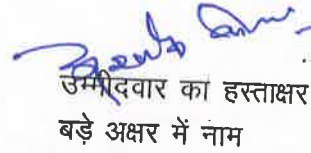 उम्मीदवार का हस्ताक्षर
बड़े अक्षर में नाम